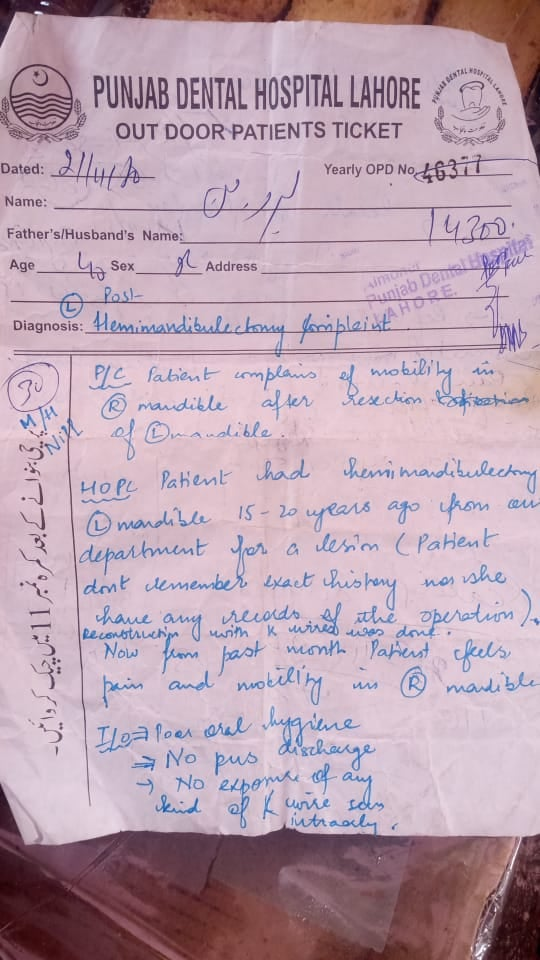 PUNJAB DENTAL HOSPITAL LAHORE
OUT DOOR PATIENTS TICKET
PUNJAB DENTAL HOSPITAL LAHORE
Dated: 21/11/20 Yearly OPD No. 46377
Name:
Father's/Husband's Name: 14300.
Age 40 Sex Address
Punjab Dental Hospital
LAHORE.
(L) Post-
Diagnosis: Hemimandibulectomy Complaint
30
M/H
Nill
پرچی بنوانے کے بعد کمرہ نمبر 11 میں چیک کروائیں۔
P/C Patient complains of mobility in
(R) mandible after resection
of (L) mandible.
HOPC Patient had hemimandibulectomy
(L) mandible 15-20 years ago from our
department for a lesion (Patient
dont remember exact history nor she
have any records of the operation).
Reconstruction with K wires was done.
Now from past month Patient feels
pain and mobility in (R) mandible
I/O⇒ Poor oral hygiene
⇒ No pus discharge
→ No exposure of any
kind of K wire seen
intraorally.